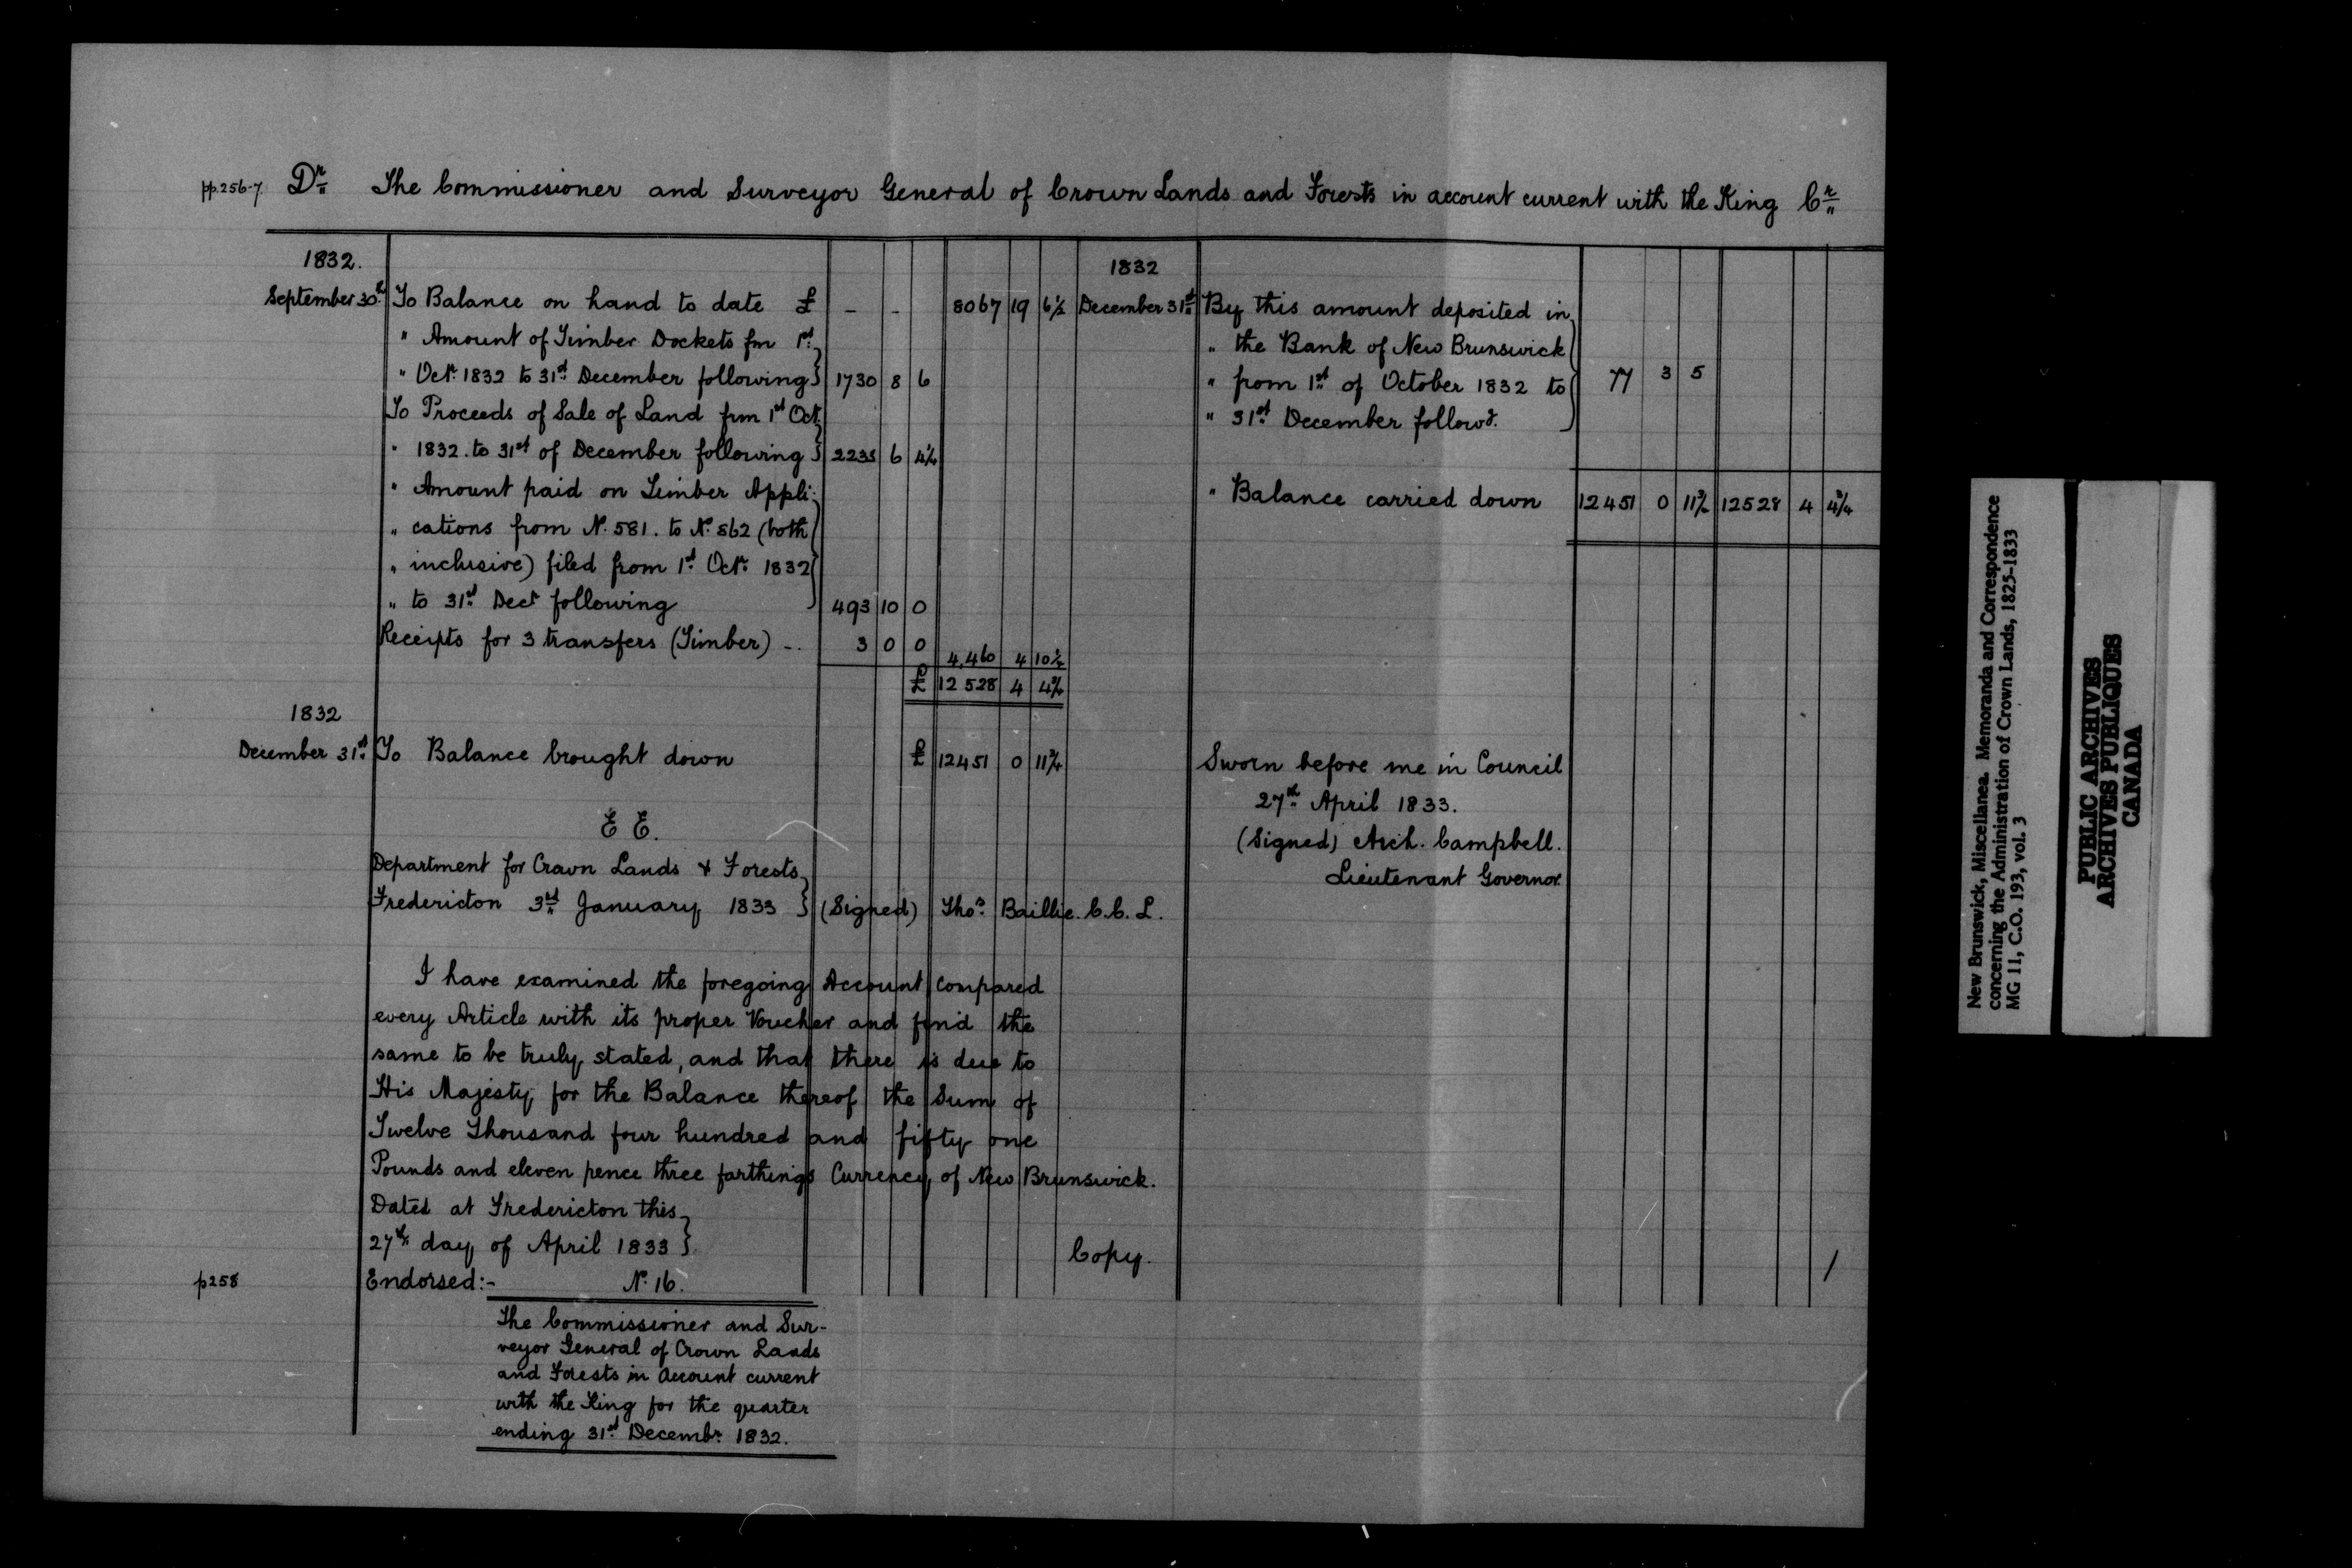 pp.256-7. Dr. The Commissioner and Surveyor General of Crown Lands and Forests in account current with the King Cr.
1832.
September 30th To Balance on hand to date £ - - 8067 19 6½
" Amount of Timber Dockets fm 1st
" Octr. 1832 to 31st December following 1730 8 6
To Proceeds of Sale of Land frm 1st Oct.
" 1832. to 31st of December following 2233 6 4¼
" Amount paid on Timber Appli:
" cations from No. 581. to No. 862 (both
" inclusive) filed from 1st Octr. 1832
" to 31st Decr following 493 10 0
Receipts for 3 transfers (Timber) - . 3 0 0 4,460 4 10¼
£ 12528 4 4¾
1832
December 31st To Balance brought down £ 12451 0 11¾
E E.
Department for Crown Lands & Forests
Fredericton 3rd January 1833 (Signed) Thos. Baillie. C.C.L.
I have examined the foregoing Account compared
every Article with its proper Voucher and find the
same to be truly stated, and that there is due to
His Majesty for the Balance thereof the Sum of
Twelve Thousand four hundred and fifty one
Pounds and eleven pence three farthings Currency of New Brunswick.
Dated at Fredericton this
27th day of April 1833
Copy.
1832
December 31st By this amount deposited in
" the Bank of New Brunswick
" from 1st of October 1832 to
" 31st December followg. 77 3 5
" Balance carried down 12451 0 11¾ 12528 4 4¾
Sworn before me in Council
27th April 1833.
(Signed) Arch. Campbell.
Lieutenant Governor.
/
p258 Endorsed:- No. 16.
The Commissioner and Sur-
veyor General of Crown Lands
and Forests in Account current
with the King for the quarter
ending 31st Decembr. 1832.
New Brunswick, Miscellanea. Memoranda and Correspondence
concerning the Administration of Crown Lands, 1825-1833
MG 11, C.O. 193, vol. 3
PUBLIC ARCHIVES
ARCHIVES PUBLIQUES
CANADA